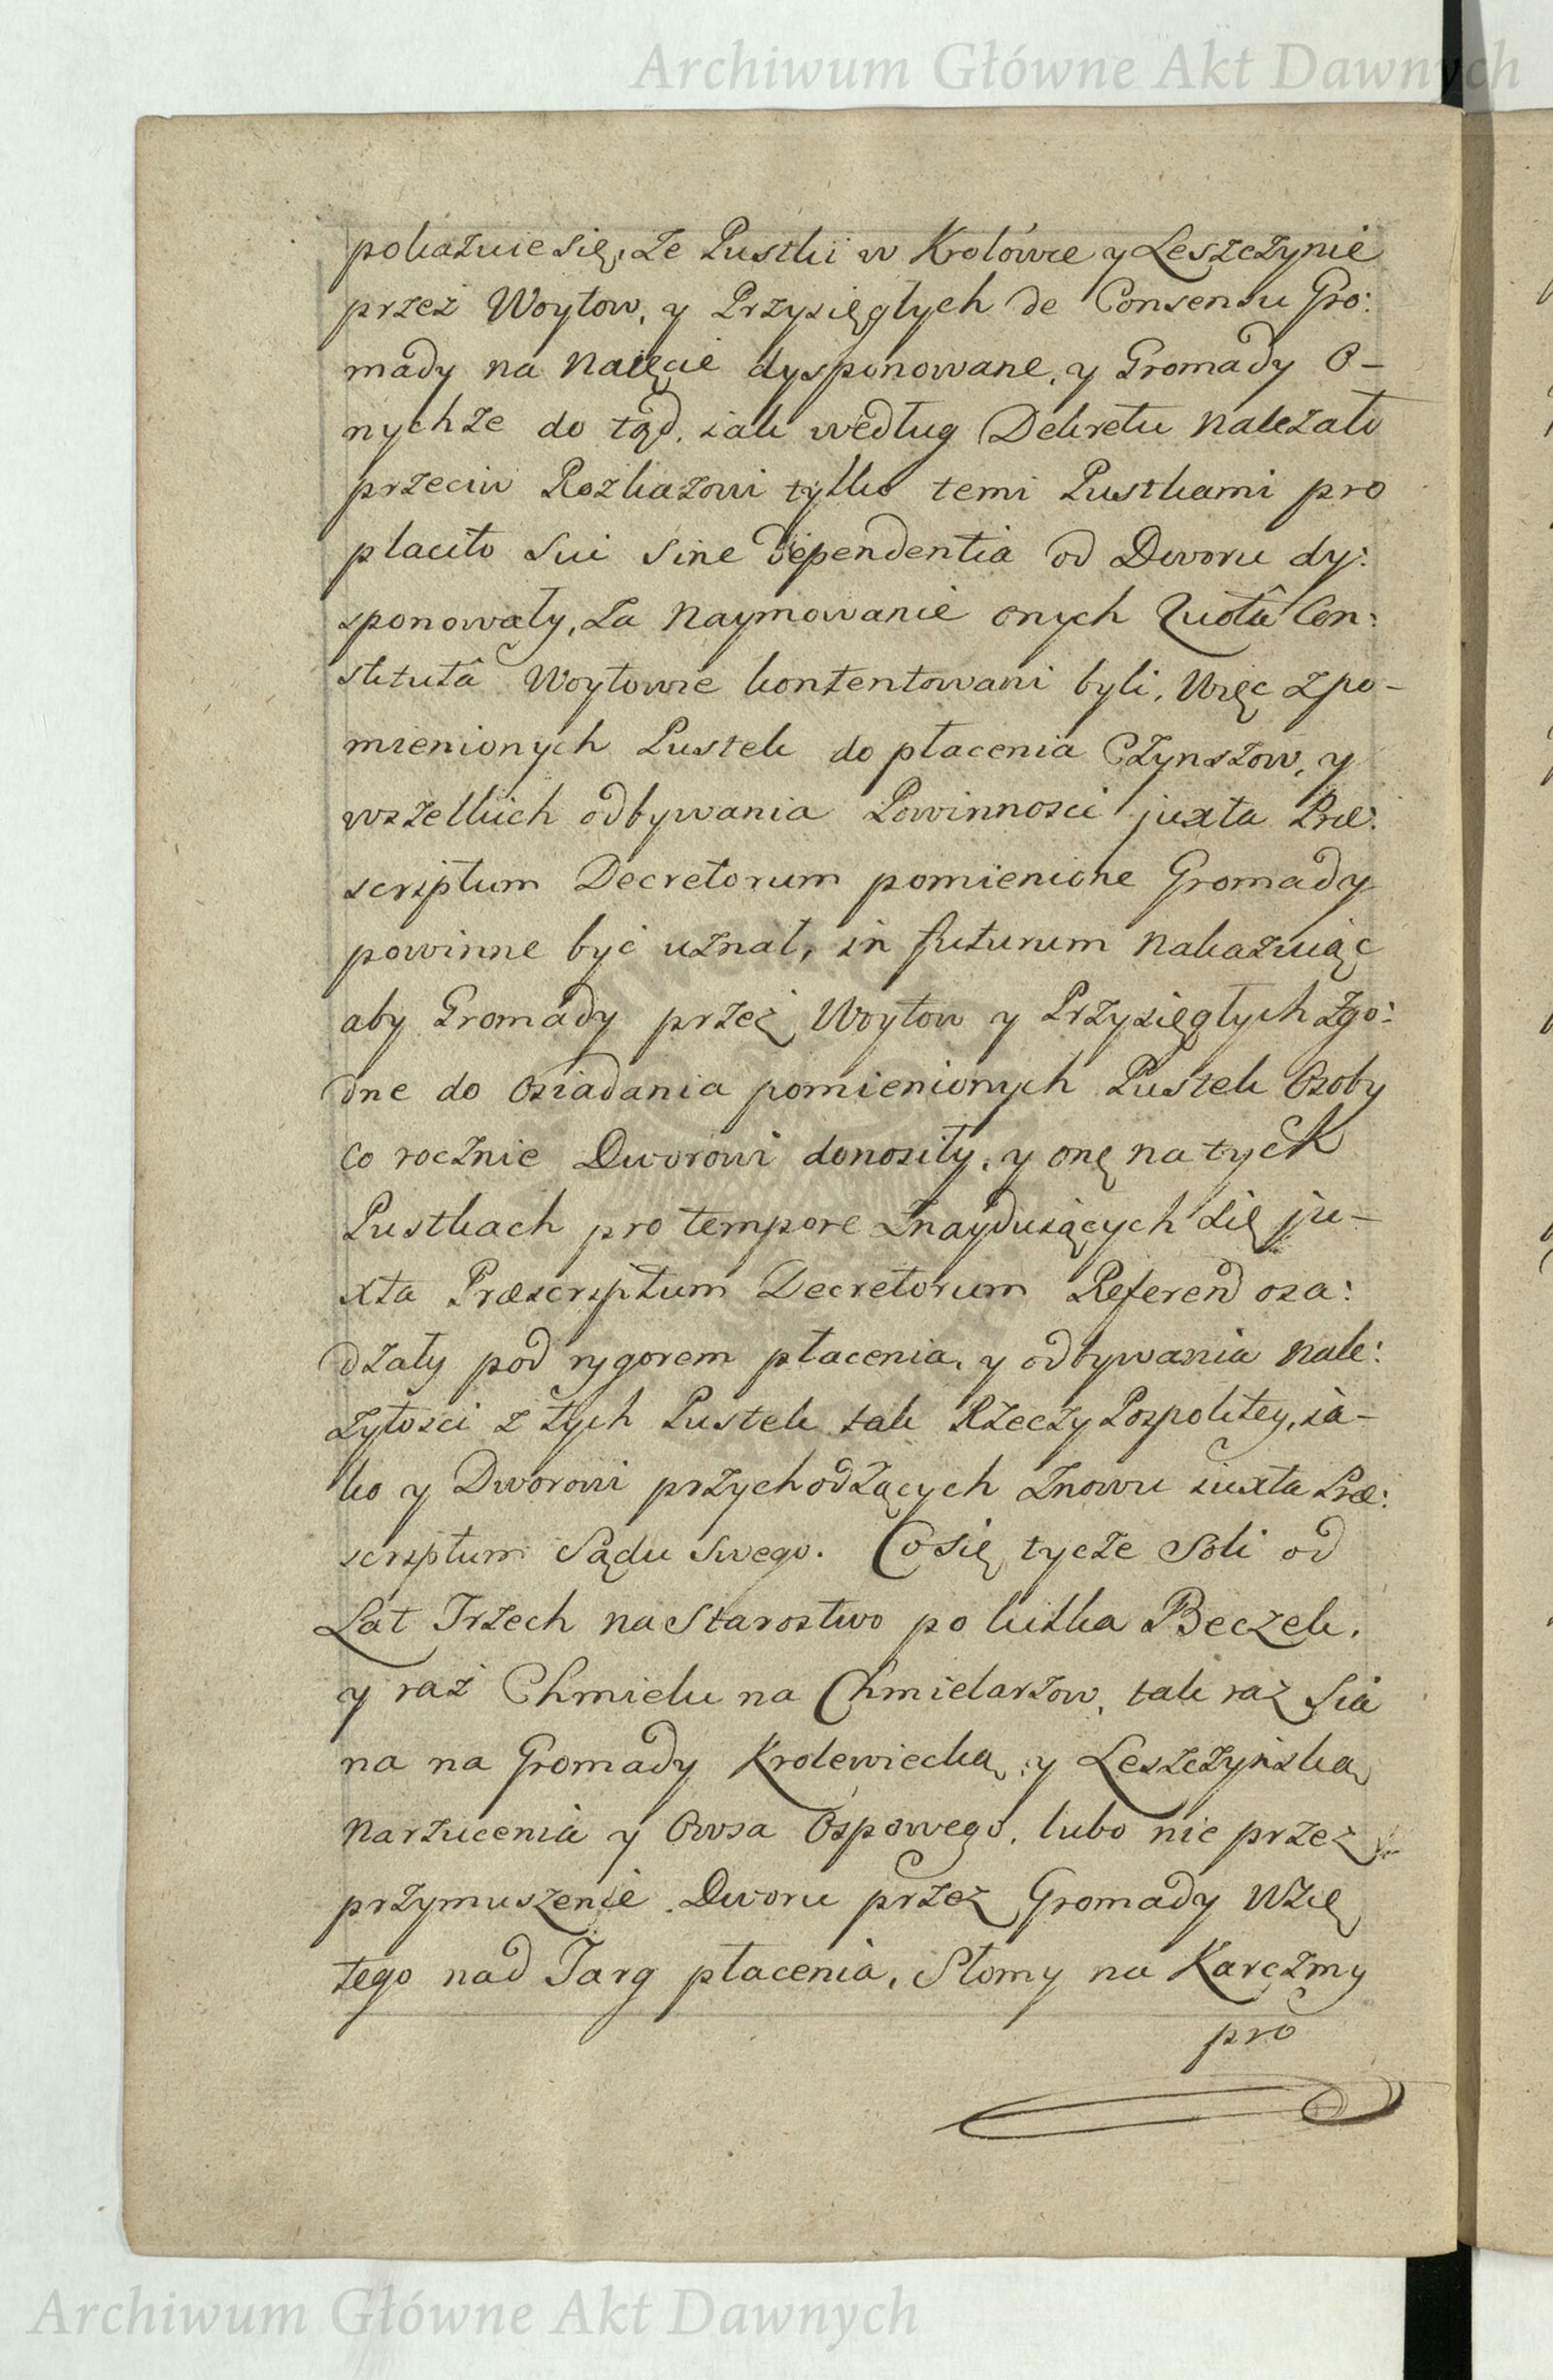 Archiwum Główne Akt Dawnych
pokazuie się, że Pustki w Krolówce y Leszczynie
przez Woytow, y Przysięgłych de Consensu Gro:
mady na naięcie dysponowane, y Gromady O-
nychże do tąd, iak według Dekretu należało
przeciw Rozkazowi tylko temi Pustkami pro
placito sui sine dependentia od Dworu dy:
sponowały, za naymowanie onych Quotâ Con:
stitutâ Woytowie kontentowani byli, Więc z po-
mienionych Pustek do płacenia Czynszow, y
wszelkich odbywania Powinnosci juxta Præ:
scriptum Decretorum pomienione Gromady
powinne być uznał, in futurum nakazuiąc
aby Gromady przez Woytow y Przysięgłych zgo:
dne do osiadania pomienionych Pustek Osoby
co rocznie Dworowi donosiły, y onę na tych
Pustkach pro tempore znayduiących się ju-
xta Præscriptum Decretorum Referend osa:
dzały pod rygorem płacenia, y odbywania nale:
żytości z tych Pustek tak Rzeczy Pospolitey, ia-
ko y Dworowi przychodzących znowu iuxta Præ:
scriptum Sądu Swego. Co się tycze Soli od
Lat Trzech na Starostwo po kilka Beczek,
y raz Chmielu na Chmielarzow, tak raz Sia
na na Gromady Krolewiecką, y Leszczyńską
narzucenia y Owsa Ospowego, lubo nie przez
przymuszenie Dworu przez Gromady Wzię
tego nad Targ płacenia, Słomy na Karczmy
pro
Archiwum Główne Akt Dawnych